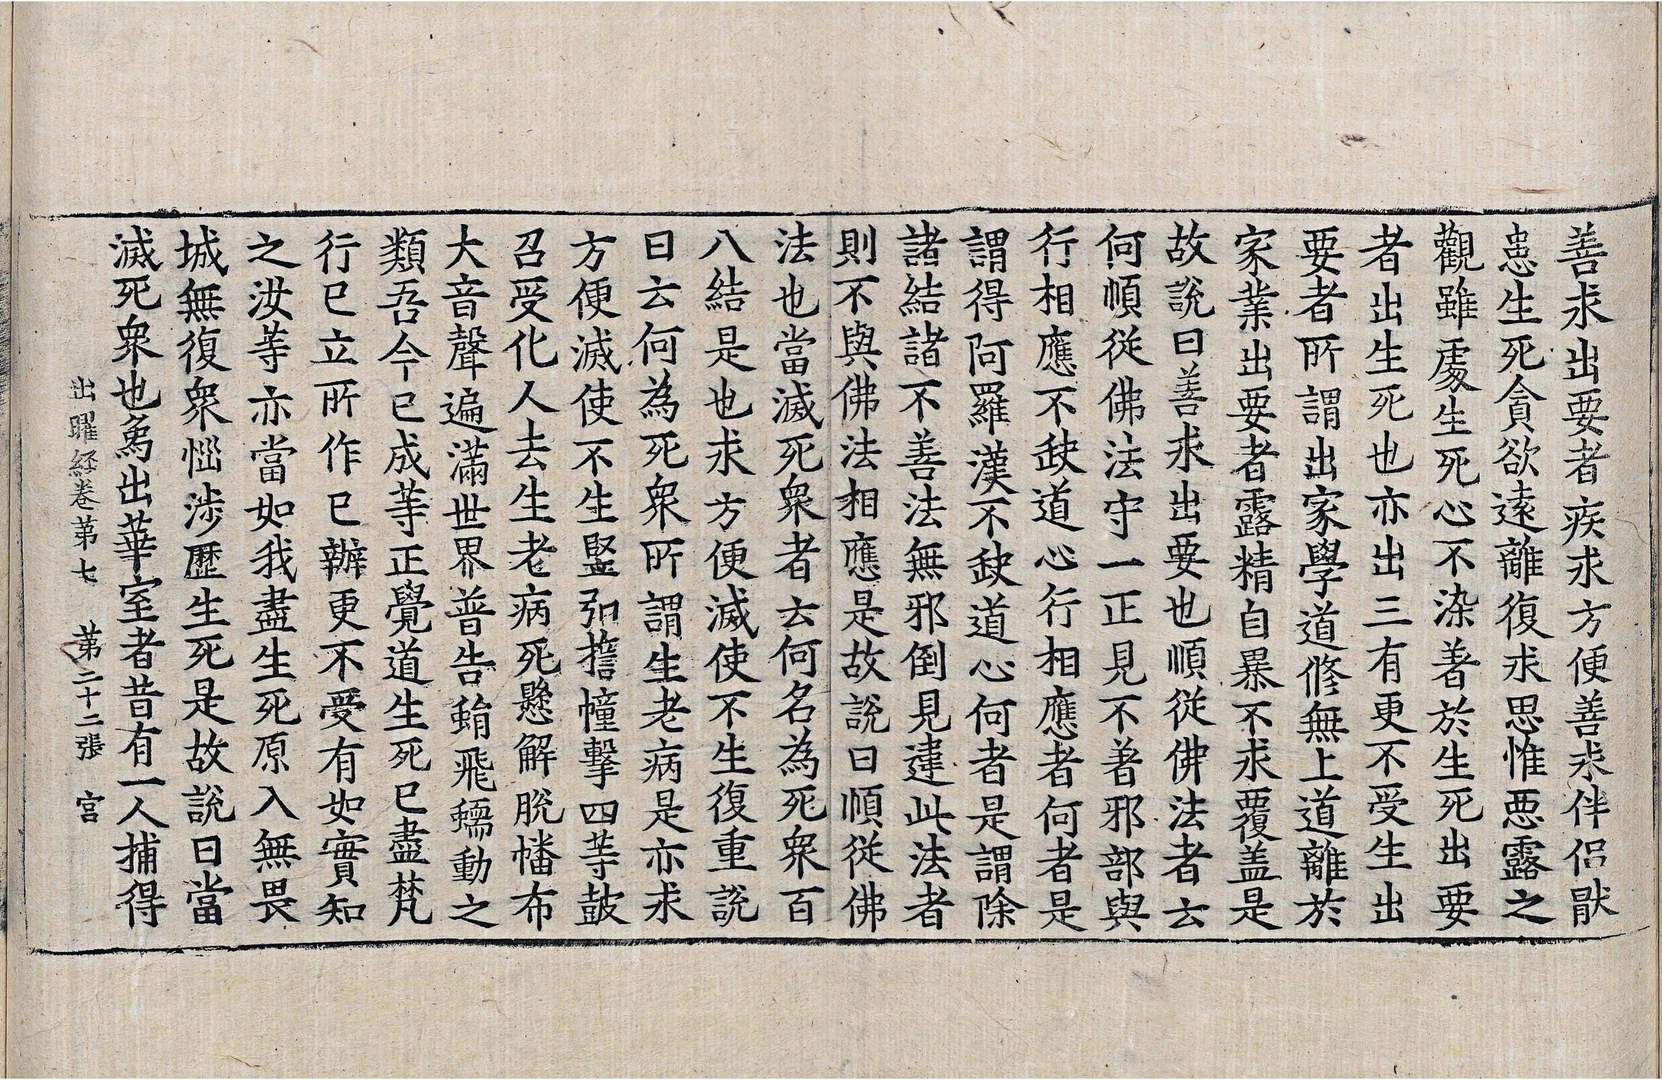 善求出要者疾求方便善求伴侣猒
患生死貪欲遠離復求思惟惡露之
觀雖處生死心不染著於生死出要
者出生死也亦出三有更不受生出
要者所謂出家學道修無上道離於
家業出要者露精自暴不求覆盖是
故說曰善求出要也順從佛法者云
何順從佛法守一正見不著邪部與
行相應不缺道心行相應者何者是
謂得阿羅漢不缺道心何者是謂除
諸結諸不善法無邪倒見違此法者
則不與佛法相應是故說曰順從佛
法也當滅死衆者云何名為死衆百
八結是也求方便滅使不生復重說
曰云何為死衆所謂生老病是亦求
方便滅使不生竪弘擔幢擊四等鼓
召受化人去生老病死懸解脫幡布
大音聲遍滿世界普告蜎飛蠕動之
類吾今已成等正覺道生死已盡梵
行已立所作已辦更不受有如實知
之汝等亦當如我盡生死原入無畏
城無復衆惱涉歷生死是故說曰當
滅死衆也象出華室者昔有一人捕得
出曜經卷第七　第二十二張　宮